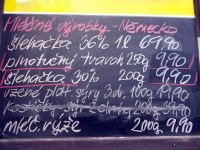 Mléčné výrobky - Německo
šlehačka 36% 1l 69,90
plnotučný tvaroh 200g 9,90
šlehačka 30% 200g 9,90
uzené plát. sýry 3dr. 100g 19,90
kostičky sýry 200g 9,90
mléč. rýže 200g 9,90